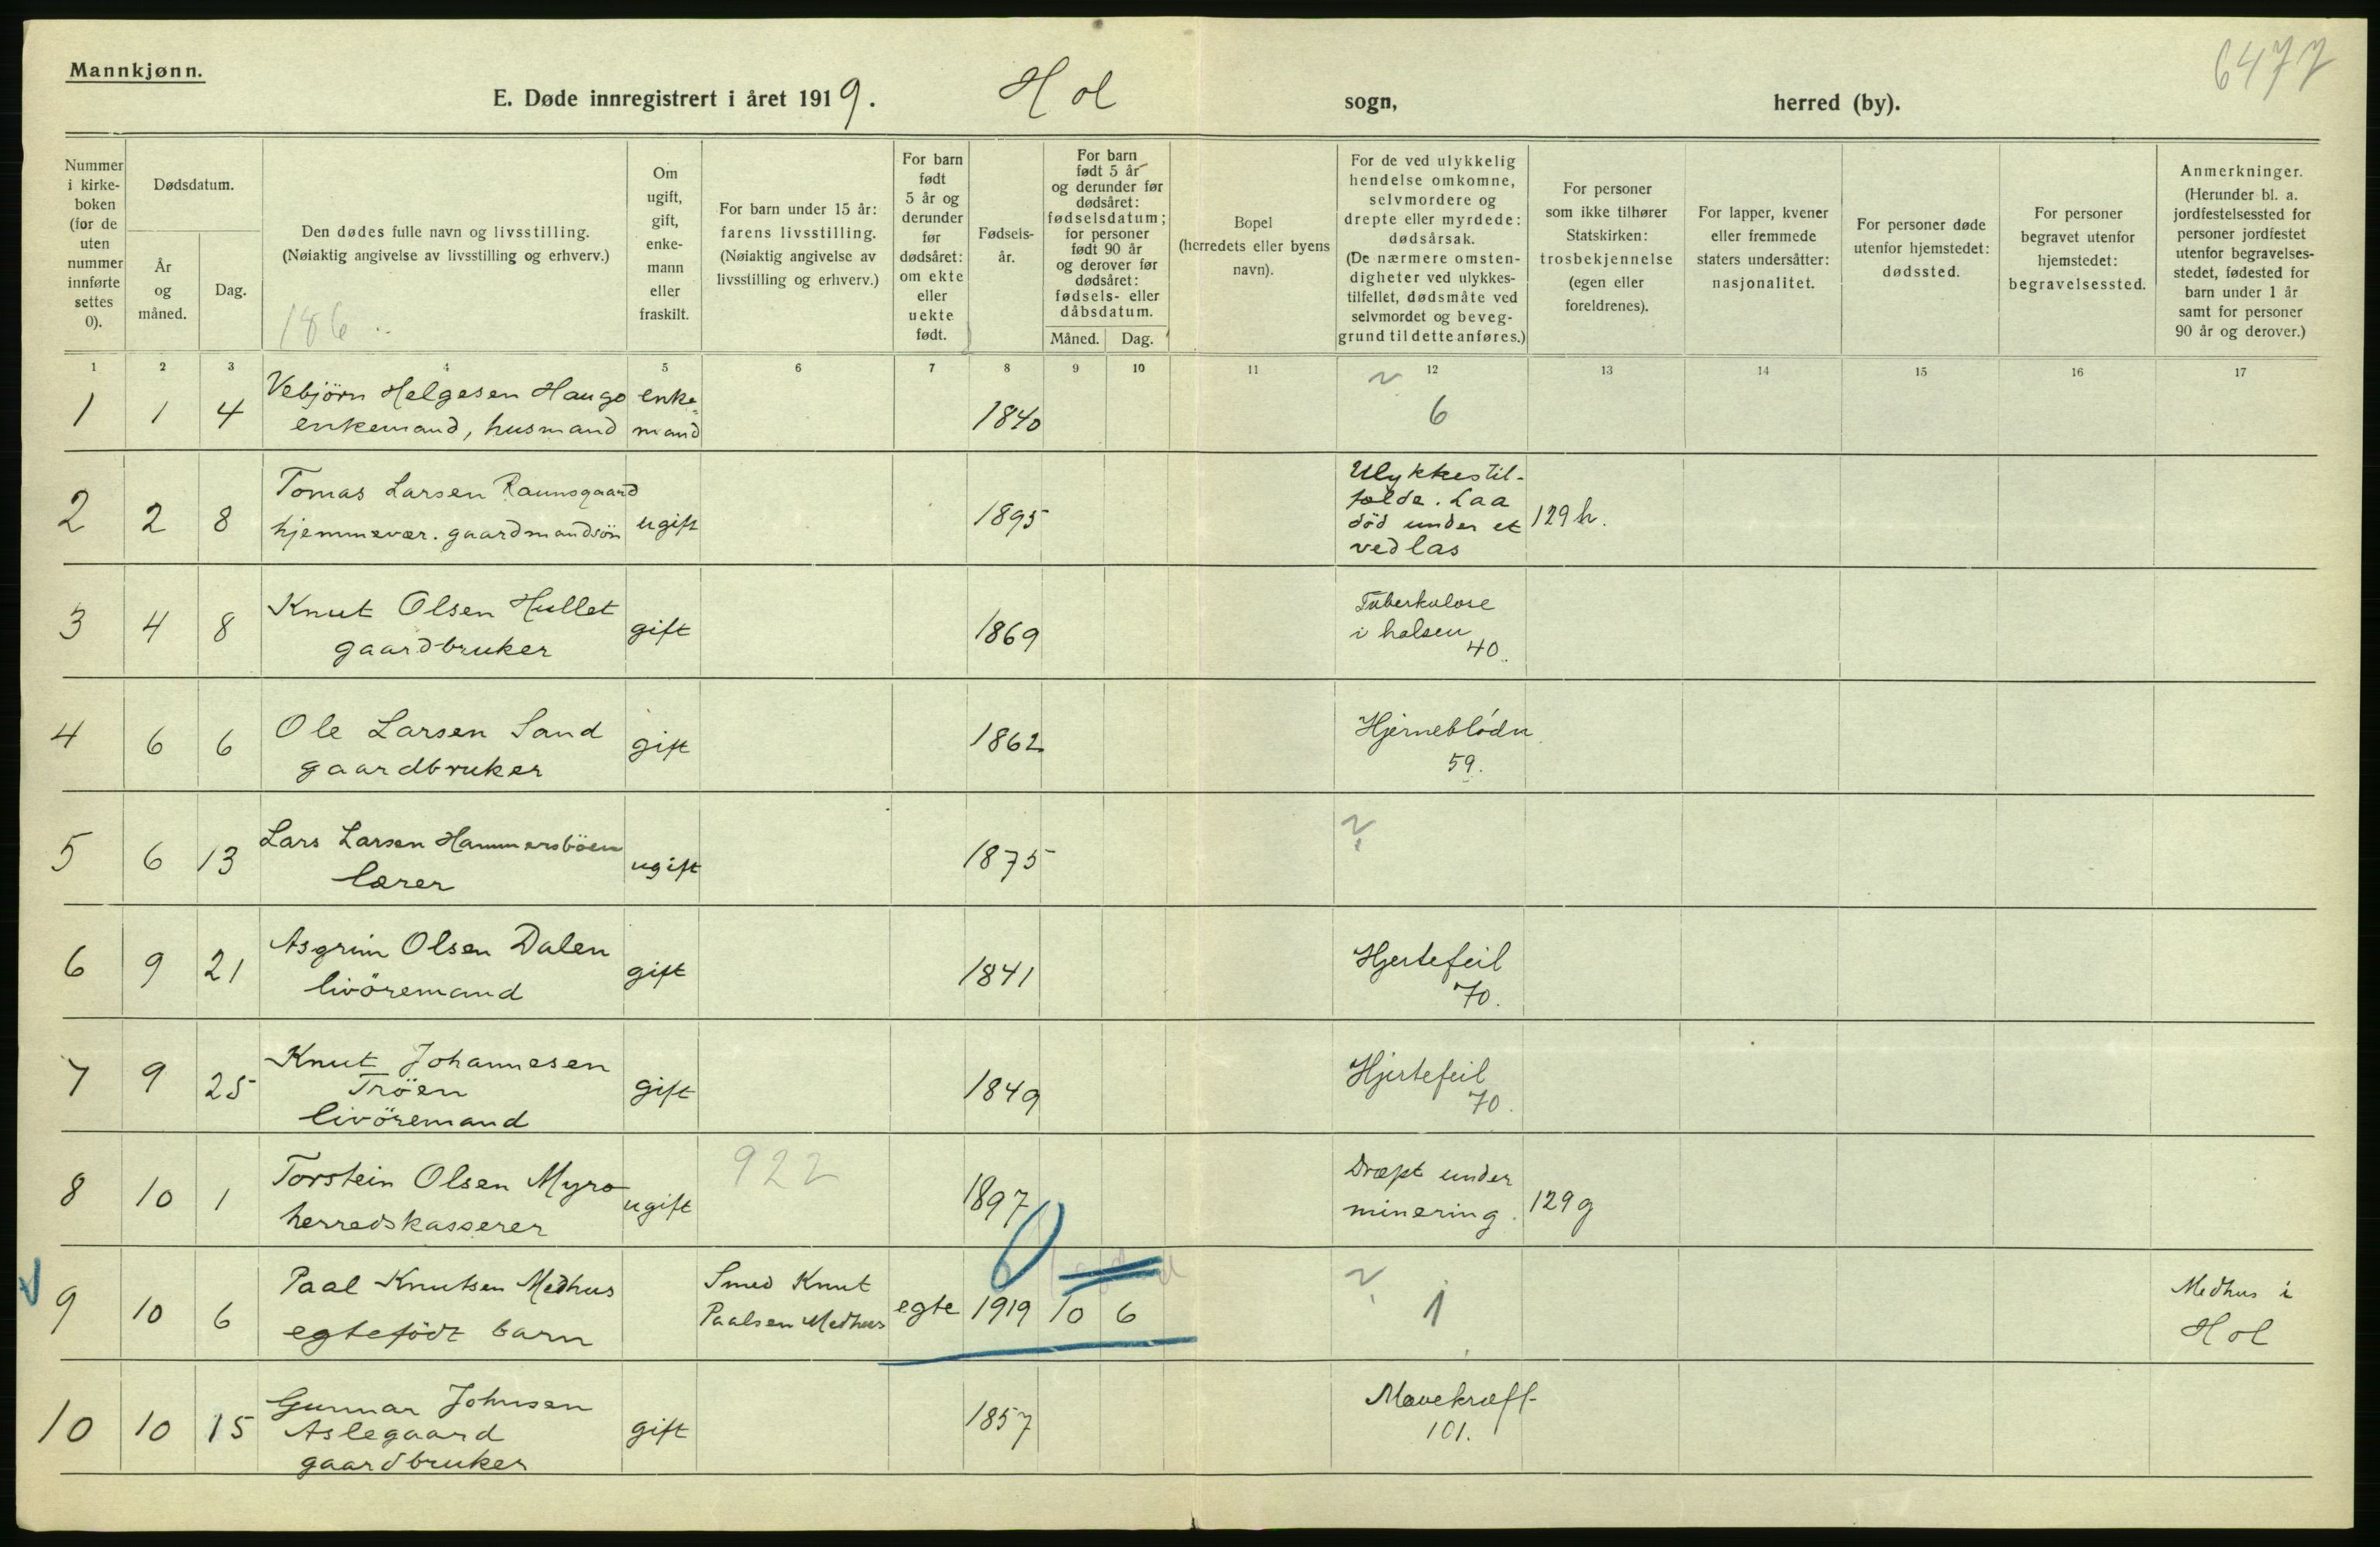 Mannkjønn.
6477
E. Døde innregistrert i året 1919. Hol sogn, herred (by).
Nummer i kirke- boken (for de uten nummer innførte settes 0).
Dødsdatum.
År og måned.
Dag.
Den dødes fulle navn og livsstilling.
(Nøiaktig angivelse av livsstilling og erhverv.)
186
Om ugift, gift, enke- mann eller fraskilt.
For barn under 15 år: farens livsstilling. (Nøiaktig angivelse av livsstilling og erhverv.)
For barn født 5 år og derunder før dødsåret: om ekte eller uekte født.
Fødsels- år.
For barn født 5 år og derunder før dødsåret: fødselsdatum; for personer født 90 år og derover før dødsåret: fødsels- eller dåbsdatum.
Måned. Dag.
Bopel (herredets eller byens navn).
For de ved ulykkelig hendelse omkomne, selvmordere og drepte eller myrdede: dødsårsak. (De nærmere omsten- digheter ved ulykkes- tilfellet, dødsmåte ved selvmordet og beveg- grund til dette anføres.)
For personer som ikke tilhører Statskirken: trosbekjennelse (egen eller foreldrenes).
For lapper, kvener eller fremmede staters undersåtter: nasjonalitet.
For personer døde utenfor hjemstedet: dødssted.
For personer begravet utenfor hjemstedet: begravelsessted.
Anmerkninger. (Herunder bl. a. jordfestelsessted for personer jordfestet utenfor begravelses- stedet, fødested for barn under 1 år samt for personer 90 år og derover.)
1 2 3 4 5 6 7 8 9 10 11 12 13 14 15 16 17
1 1 4 Vebjörn Helgesen Haugo enke- 1840 6
enkemand, husmand mand
2 2 8 Tomas Larsen Raunsgaard ugift 1895 Ulykkestil-
hjemmevær. gaardmandsön fælde. Laa
död under et 129h.
vedlas
3 4 8 Knut Olsen Hullet gift 1869 Tuberkulose
gaardbruker i halsen
40.
4 6 6 Ole Larsen Sand gift 1862 Hjerneblödn.
gaardbruker 59.
5 6 13 Lars Larsen Hammersböen ugift 1875 ?
lærer
6 9 21 Asgrim Olsen Dalen gift 1841 Hjertefeil
livöremand 70.
7 9 25 Knut Johannesen gift 1849 Hjertefeil
Tröen 70.
livöremand
8 10 1 Torstein Olsen Myro ugift 922 1897 Dræpt under
herredskasserer minering. 129g
9 10 6 Paal Knutsen Medhus Smed Knut egte 1919 10 6 ? 1 Medhus i
egtefödt barn Paalsen Medhus Hol
10 10 15 Gunnar Johnsen gift 1857 Mavekræft
Aslegaard 101.
gaardbruker